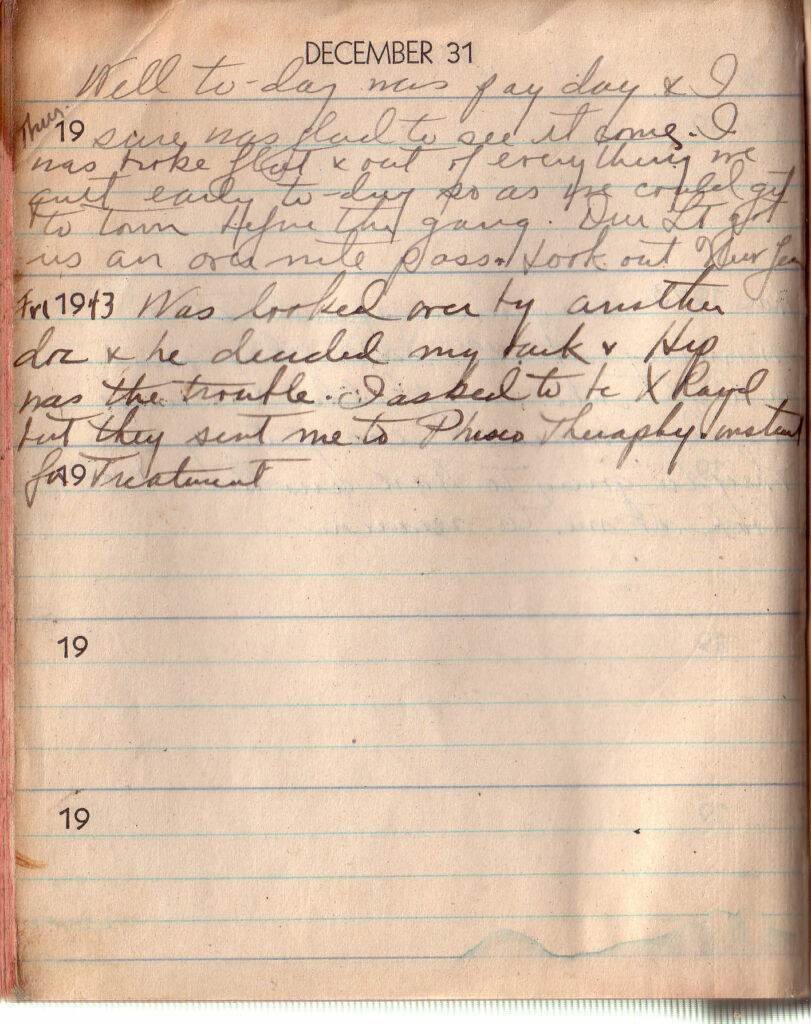 DECEMBER 31
Well to-day was pay day & I
Thurs. 19 sure was glad to see it come. I
was broke flat & out of everything we
quit early to-day so as we could get
to town before the gang. Our Lt got
us an over nite pass. & look out New Year
Fri 1943 Was looked over by another
doc & he decided my back & Hip
was the trouble. I asked to be X Rayd
but they sent me to Physio Theraphy instead
for 19 Treatment
19
19